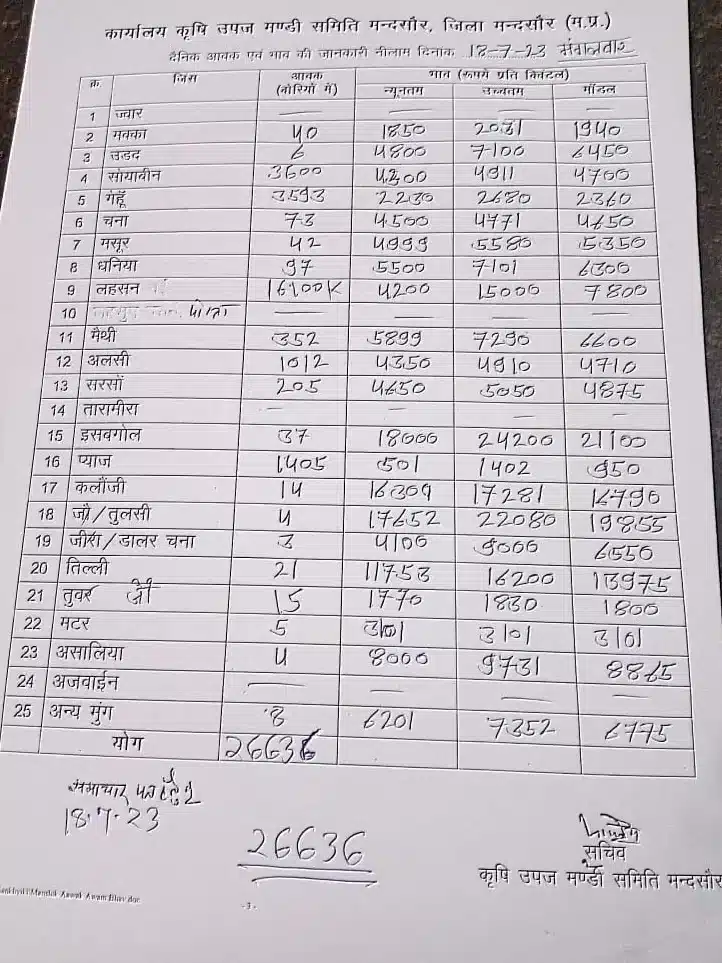 कार्यालय कृषि उपज मण्डी समिति मन्दसौर, जिला मन्दसौर (म.प्र.)
दैनिक आवक एवं भाव की जानकारी नीलाम दिनाक 18-7-23 मंगलवार
क्र. जिंस आवक (बोरियों में) भाव (रूपये प्रति क्विंटल)
न्यूनतम उच्चतम मॉडल
1 ज्वार — — — —
2 मक्का 40 1850 2031 1940
3 उडद 6 4800 7100 6450
4 सोयाबीन 3600 4300 4911 4700
5 गेहूँ 3593 2230 2680 2360
6 चना 73 4500 4771 4650
7 मसूर 42 4999 5580 5350
8 धनिया 97 5500 7101 6300
9 लहसन 16900K 4200 15000 7800
10 — — — —
11 मैथी 352 5899 7290 6600
12 अलसी 1012 4350 4910 4710
13 सरसों 205 4650 5050 4875
14 तारामीरा — — — —
15 इसबगोल 37 18000 24200 21100
16 प्याज 1405 501 1402 950
17 कलौंजी 14 16309 17281 16796
18 जौ/तुलसी 4 17652 22080 19855
19 जीरा/डालर चना 3 4100 9000 6550
20 तिल्ली 21 11753 16200 13975
21 तुवर जौ 15 1770 1830 1800
22 मटर 5 3101 3101 3101
23 असालिया 4 8000 9731 8865
24 अजवाईन — — — —
25 अन्य मुंग 8 6201 7352 6775
योग 26636
समाचार
18.7.23
26636
सचिव
कृषि उपज मण्डी समिति मन्दसौर
-3-